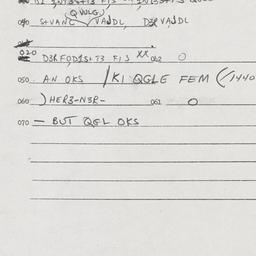 QWLG
040 S+VANC / VADDL, D3R VADDL
020
D3RFQD1S+73 FIJ XX 042 O
050 AN OKS / KI QGLE FEM (/1440
060 ) HER3-N3R- 061 O
070 — BUT QGL OKS